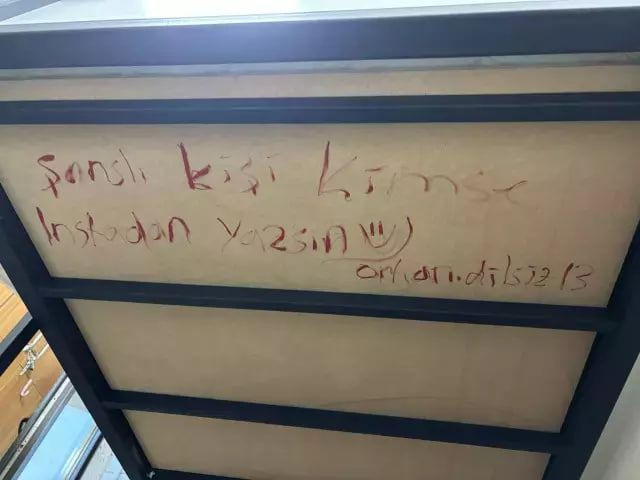 şanslı kişi kimse
Instadan yazsın
orhan.dilsiz13